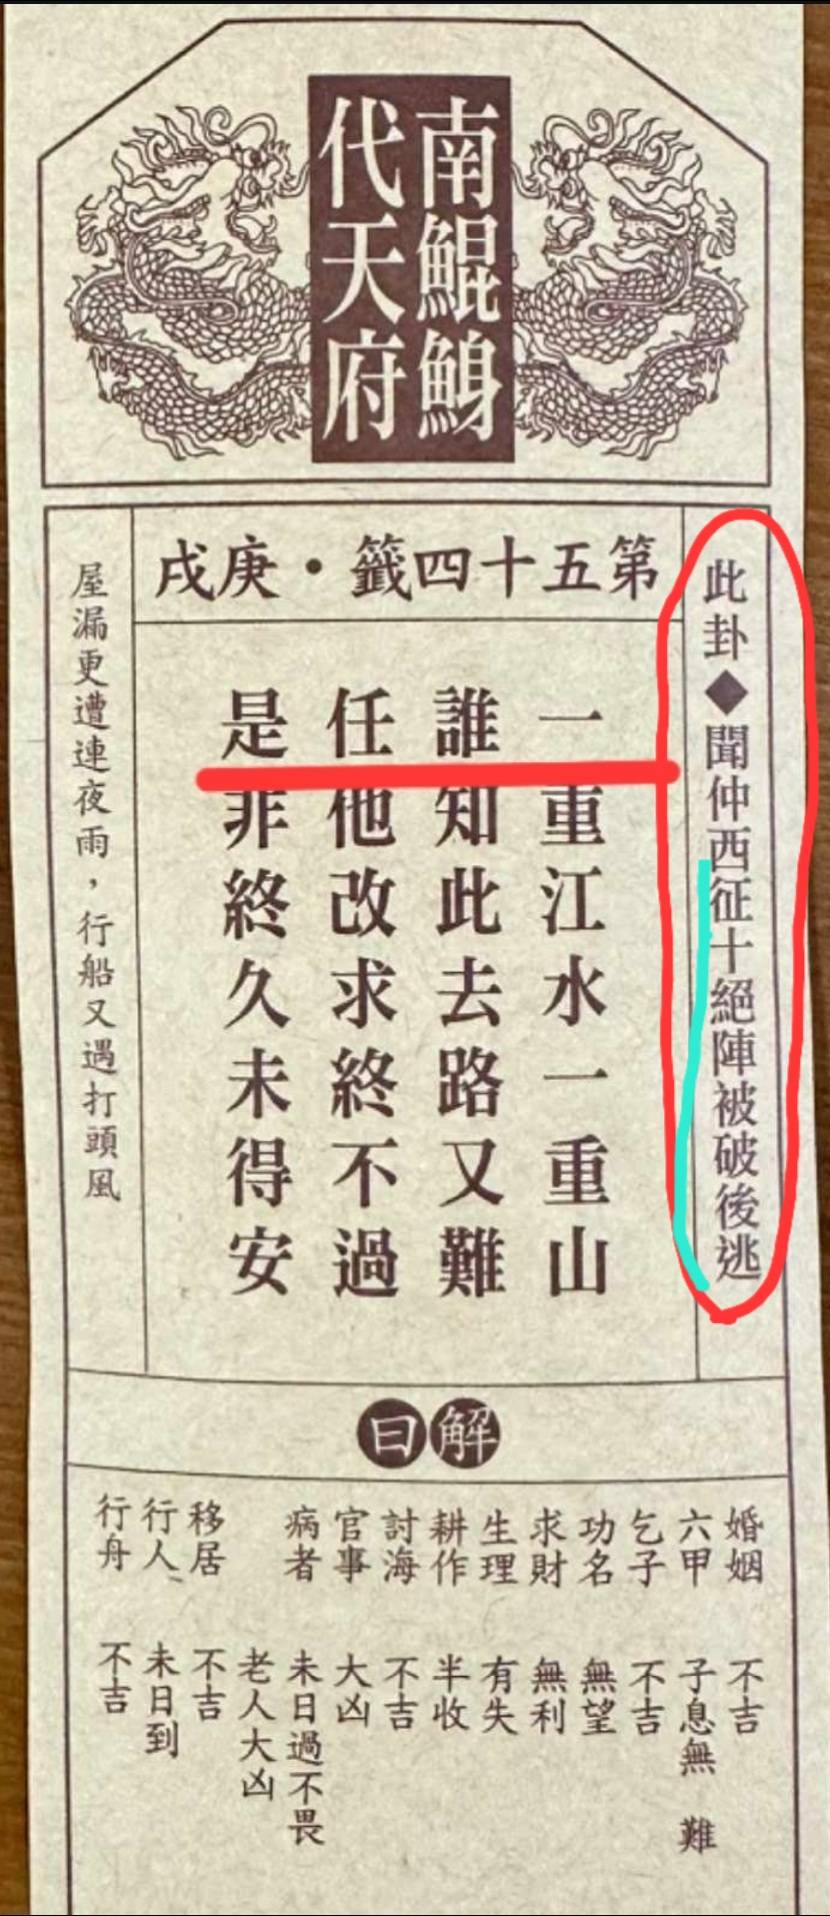 南鯤鯓
代天府
第五十四籤・庚戌
此卦◆聞仲西征十絕陣被破後逃
一重江水一重山
誰知此去路又難
任他改求終不過
是非終久未得安
屋漏更遭連夜雨，行船又遇打頭風
解曰
婚姻 不吉
六甲 子息無 難
乞子 不吉
功名 無望
求財 無利
生理 有失
耕作 半收
討海 不吉
官事 大凶
病者 未日過不畏
老人大凶
移居 不吉
行人、 未日到
行舟 不吉